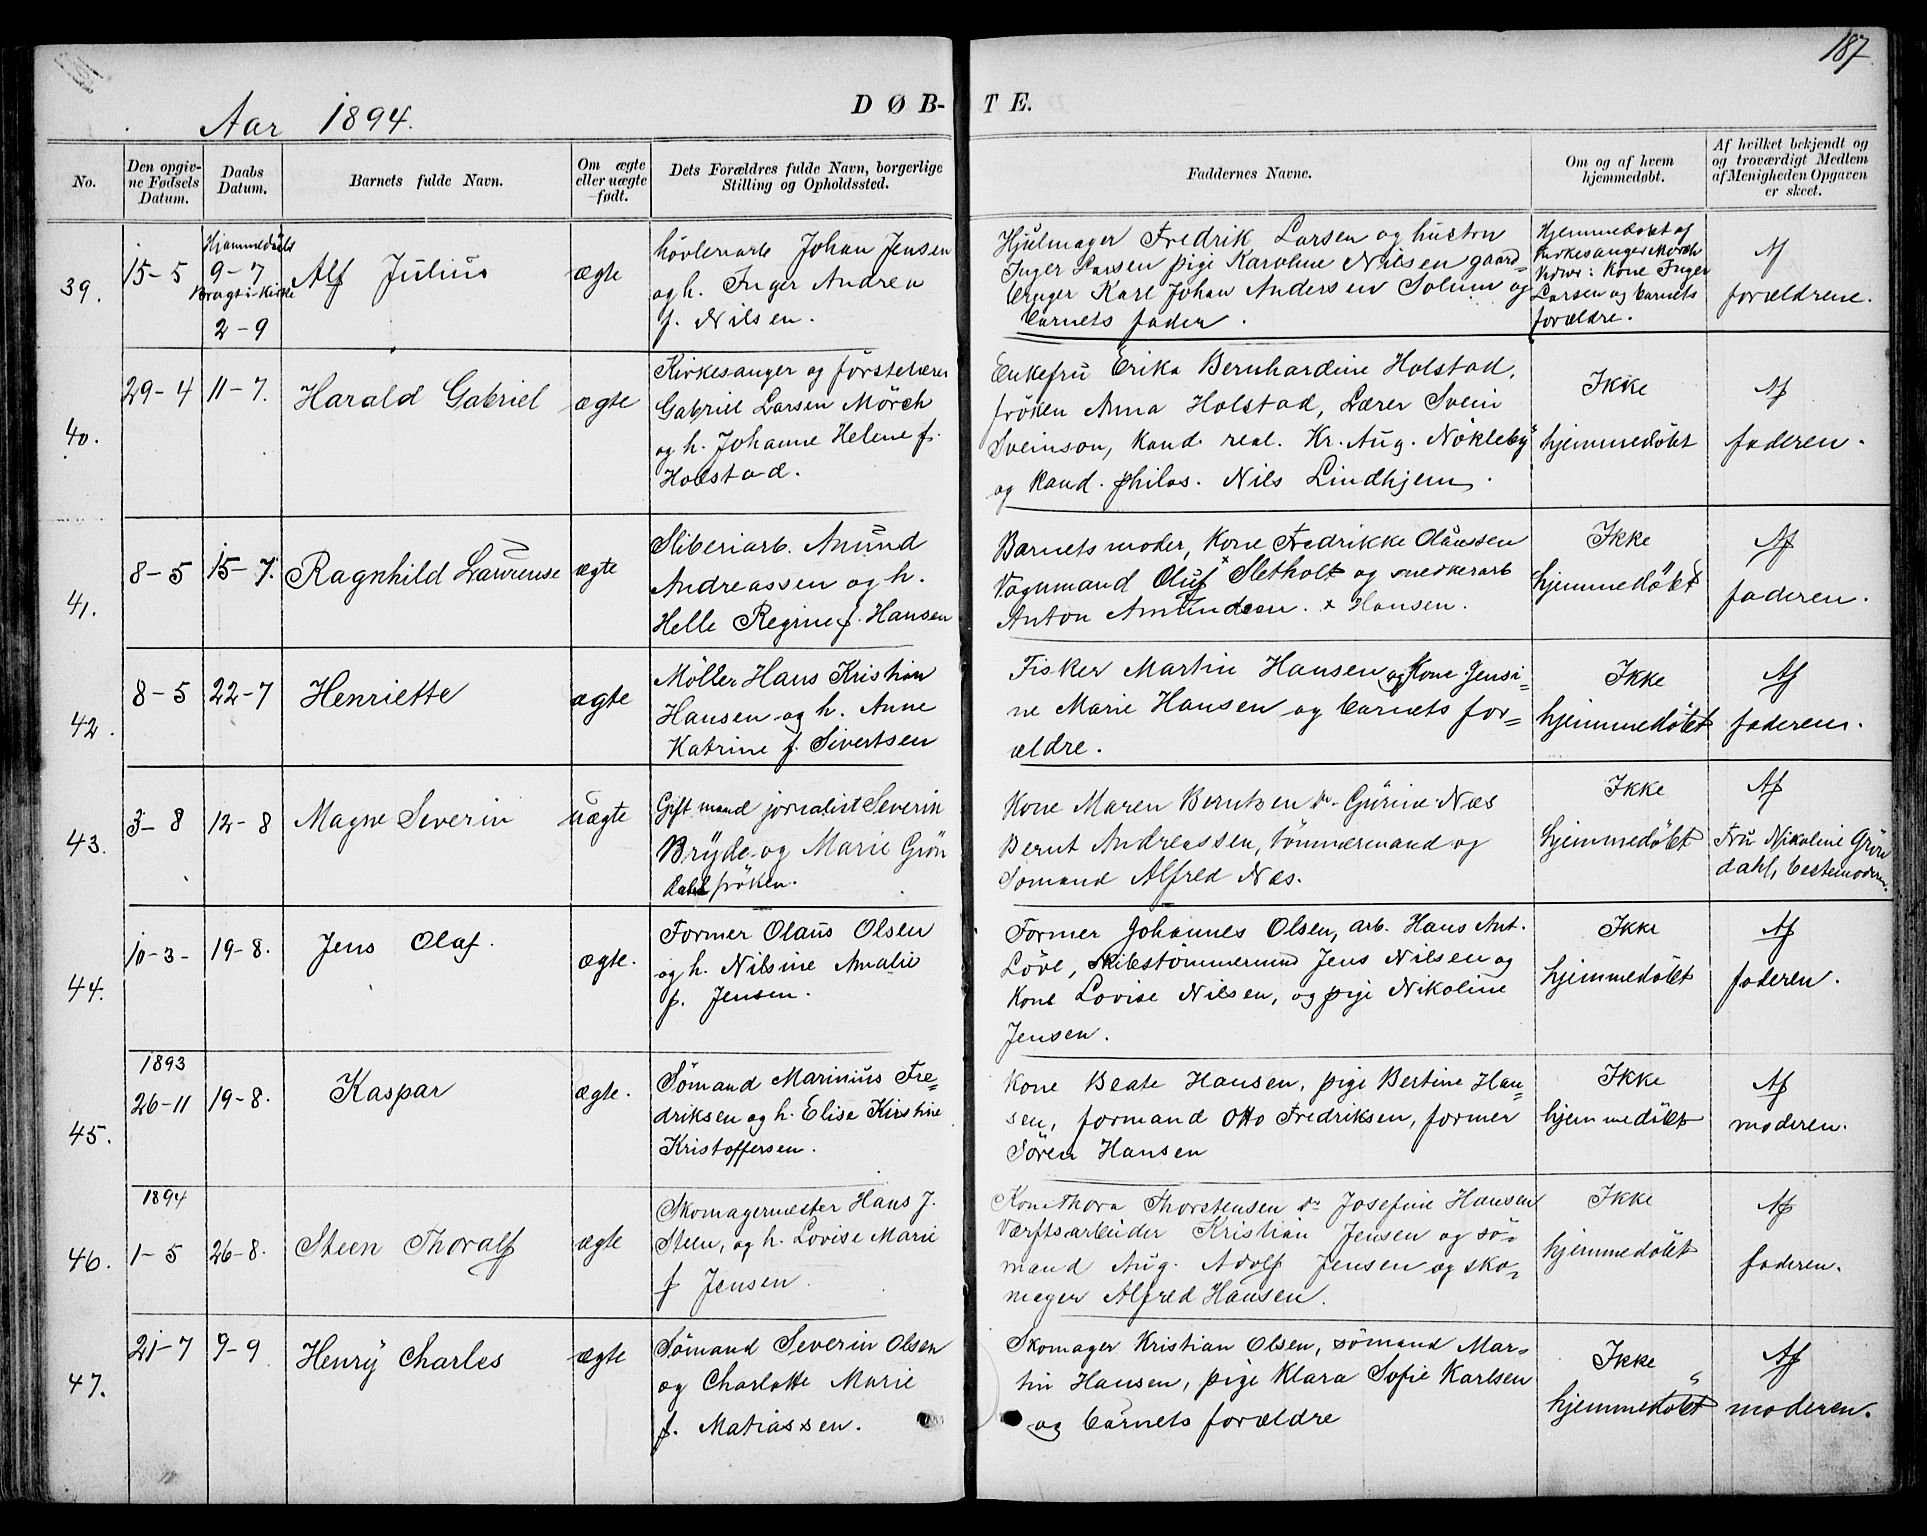 187
Aar 1894.
DØB-TE.
No.
Den opgivne Fødsels Datum.
Daabs Datum.
Barnets fulde Navn.
Om ægte eller uægte født.
Dets Forældres fulde Navn, borgerlige Stilling og Opholdssted.
Faddernes Navne.
Om og af hvem hjemmedøbt.
Af hvilket bekjendt og og troværdigt Medlem af Menigheden Opgaven er skeet.
39.
15-5
Hjemmedøbt
9-7
Bragt i Kirke
2-9
Alf Julius
ægte
høvleriarb Johan Jensen
og h. Inger Andrea
f. Nilsen.
Hjulmager Fredrik Larsen og hustru
Inger Larsen pige Karoline Nilsen gaard-
bruger Karl Johan Andersen Solum og
barnets fader.
Hjemmedøbt af
Kirkesanger Mørch
Kone Inger
Larsen og barnets
forældre.
Af
forældrene.
40.
29-4
11-7.
Harald Gabriel
ægte
Kirkesanger og førstelærer
Gabriel Larsen Mörch
og h. Johanne Helene f.
Holstad.
Enkefru Erika Bernhardine Holstad,
fröken Anna Holstad, Lærer Svein
Sveinson, kand. real. Kr. Aug. Nökleby
og kand. philos. Nils Lindhjem.
Ikke
hjemmedöbt
Af
faderen.
41.
8-5
15-7.
Ragnhild Laurense
ægte
Sliberiarb. Amund
Andreassen og h.
Helle Regine f. Hansen
Barnets moder, Kone Fredrikke Olaussen
Vognmand Oluf Sletholt og snedkerarb
Anton Amundsen. x Hansen.
Ikke
hjemmedöbt
Af
faderen.
42.
8-5
22-7
Henriette
ægte
Möller Hans Kristian
Hansen og h. Anne
Katrine f. Sivertsen
Fisker Martin Hansen og Kone Jensi-
ne Marie Hansen og barnets for-
ældre.
Ikke
hjemmedöbt
Af
faderen.
43.
3-8
12-8
Magne Severin
uægte
Gift mand jornalist Severin
Bryde og Marie Grön
dahl fröken.
Kone Maren Berntsen do Gurine Næs
Bernt Andreassen, tömmermand og
Sömand Alfred Næs.
Ikke
hjemmedöbt
Af
Fru Nikoline Grön
dahl, bestemoderen.
44.
10-3-
19-8.
Jens Olaf.
ægte.
Former Olaus Olsen
og h. Nilsine Amalie
f. Jensen.
Former Johannes Olsen, arb. Hans Ant.
Löve, Skibstömmermand Jens Nilsen og
Kone Lovise Nilsen, og pige Nikoline
Jensen.
Ikke
hjemmedöbt
Af
faderen.
45.
1893
26-11
19-8.
Kaspar
ægte.
Sömand Marinius Fre-
driksen og h. Elise Kirstine
Kristoffersen.
Kone Beate Hansen, pige Bertine Han-
sen, formand Otto Fredriksen, former
Sören Hansen
Ikke
hjemmedöbt
Af
moderen.
46.
1894
1-5
26-8.
Steen Thoralf
ægte
Skomagermester Hans J.
Steen, og h. Lovise Marie
f Jensen.
Kone Thora Thorstensen do Josefine Hansen
Værftsarbeider Kristian Jensen og sö-
mand Aug. Adolf Jensen og sko-
mager Alfred Hansen.
Ikke
hjemmedöbt
Af
faderen.
47.
21-7
9-9
Henry Charles
ægte
Sömand Severin Olsen
og Charlotte Marie
f. Matiassen.
Skomager Kristian Olsen, sömand Mar-
tin Hansen, pige Klara Sofie Karlsen
og barnets forældre
Ikke
hjemmedöbt
Af
moderen.